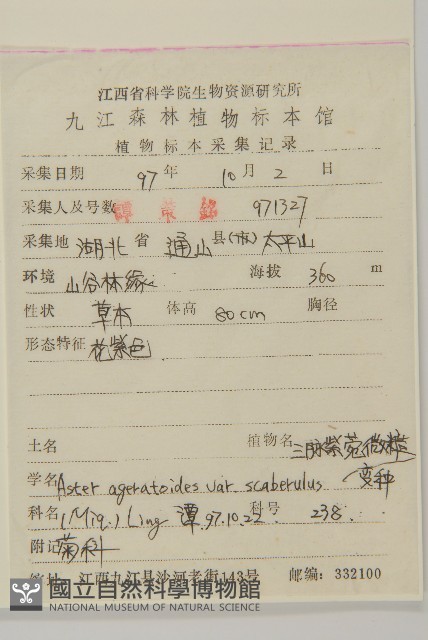 江西省科学院生物资源研究所
九江森林植物标本馆
植物标本采集记录
采集日期 97 年 10 月 2 日
采集人及号数 譚策銘 971327
采集地 湖北 省 通山 县(市) 太平山
环境 山谷林缘 海拔 360 m
性状 草本 体高 80cm 胸径
形态特征 花紫色
土名 植物名 三脉紫菀微糙
变种
学名 Aster ageratoides var. scaberulus
科名 (Miq.) Ling 谭.97.10.22. 科号 238.
附记 菊科
江西九江县沙河老街143号 邮编: 332100
國立自然科學博物館
NATIONAL MUSEUM OF NATURAL SCIENCE